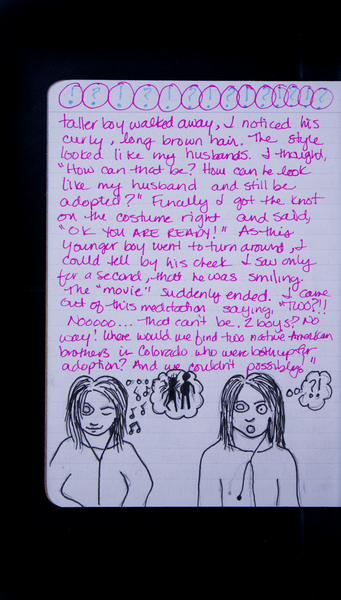 ! ? ! ? ! ? ! ? ! ? ! ? ! ?
taller boy walked away, I noticed his
curly, long brown hair. The style
looked like my husbands. I thought,
"How can that be? How can he look
like my husband and still be
adopted?" Finally I got the knot
on the costume right and said,
"OK YOU ARE READY!" As this
younger boy went to turn around, I
could tell by his cheek I saw only
for a second, that he was smiling.
The "movie" suddenly ended. I came
out of this meditation saying, "TWO?!!
Nooooo... That can't be. 2 boys? No
way! Where would we find two native American
brothers in Colorado who were both up for
adoption? And we couldn't possibly"
?!